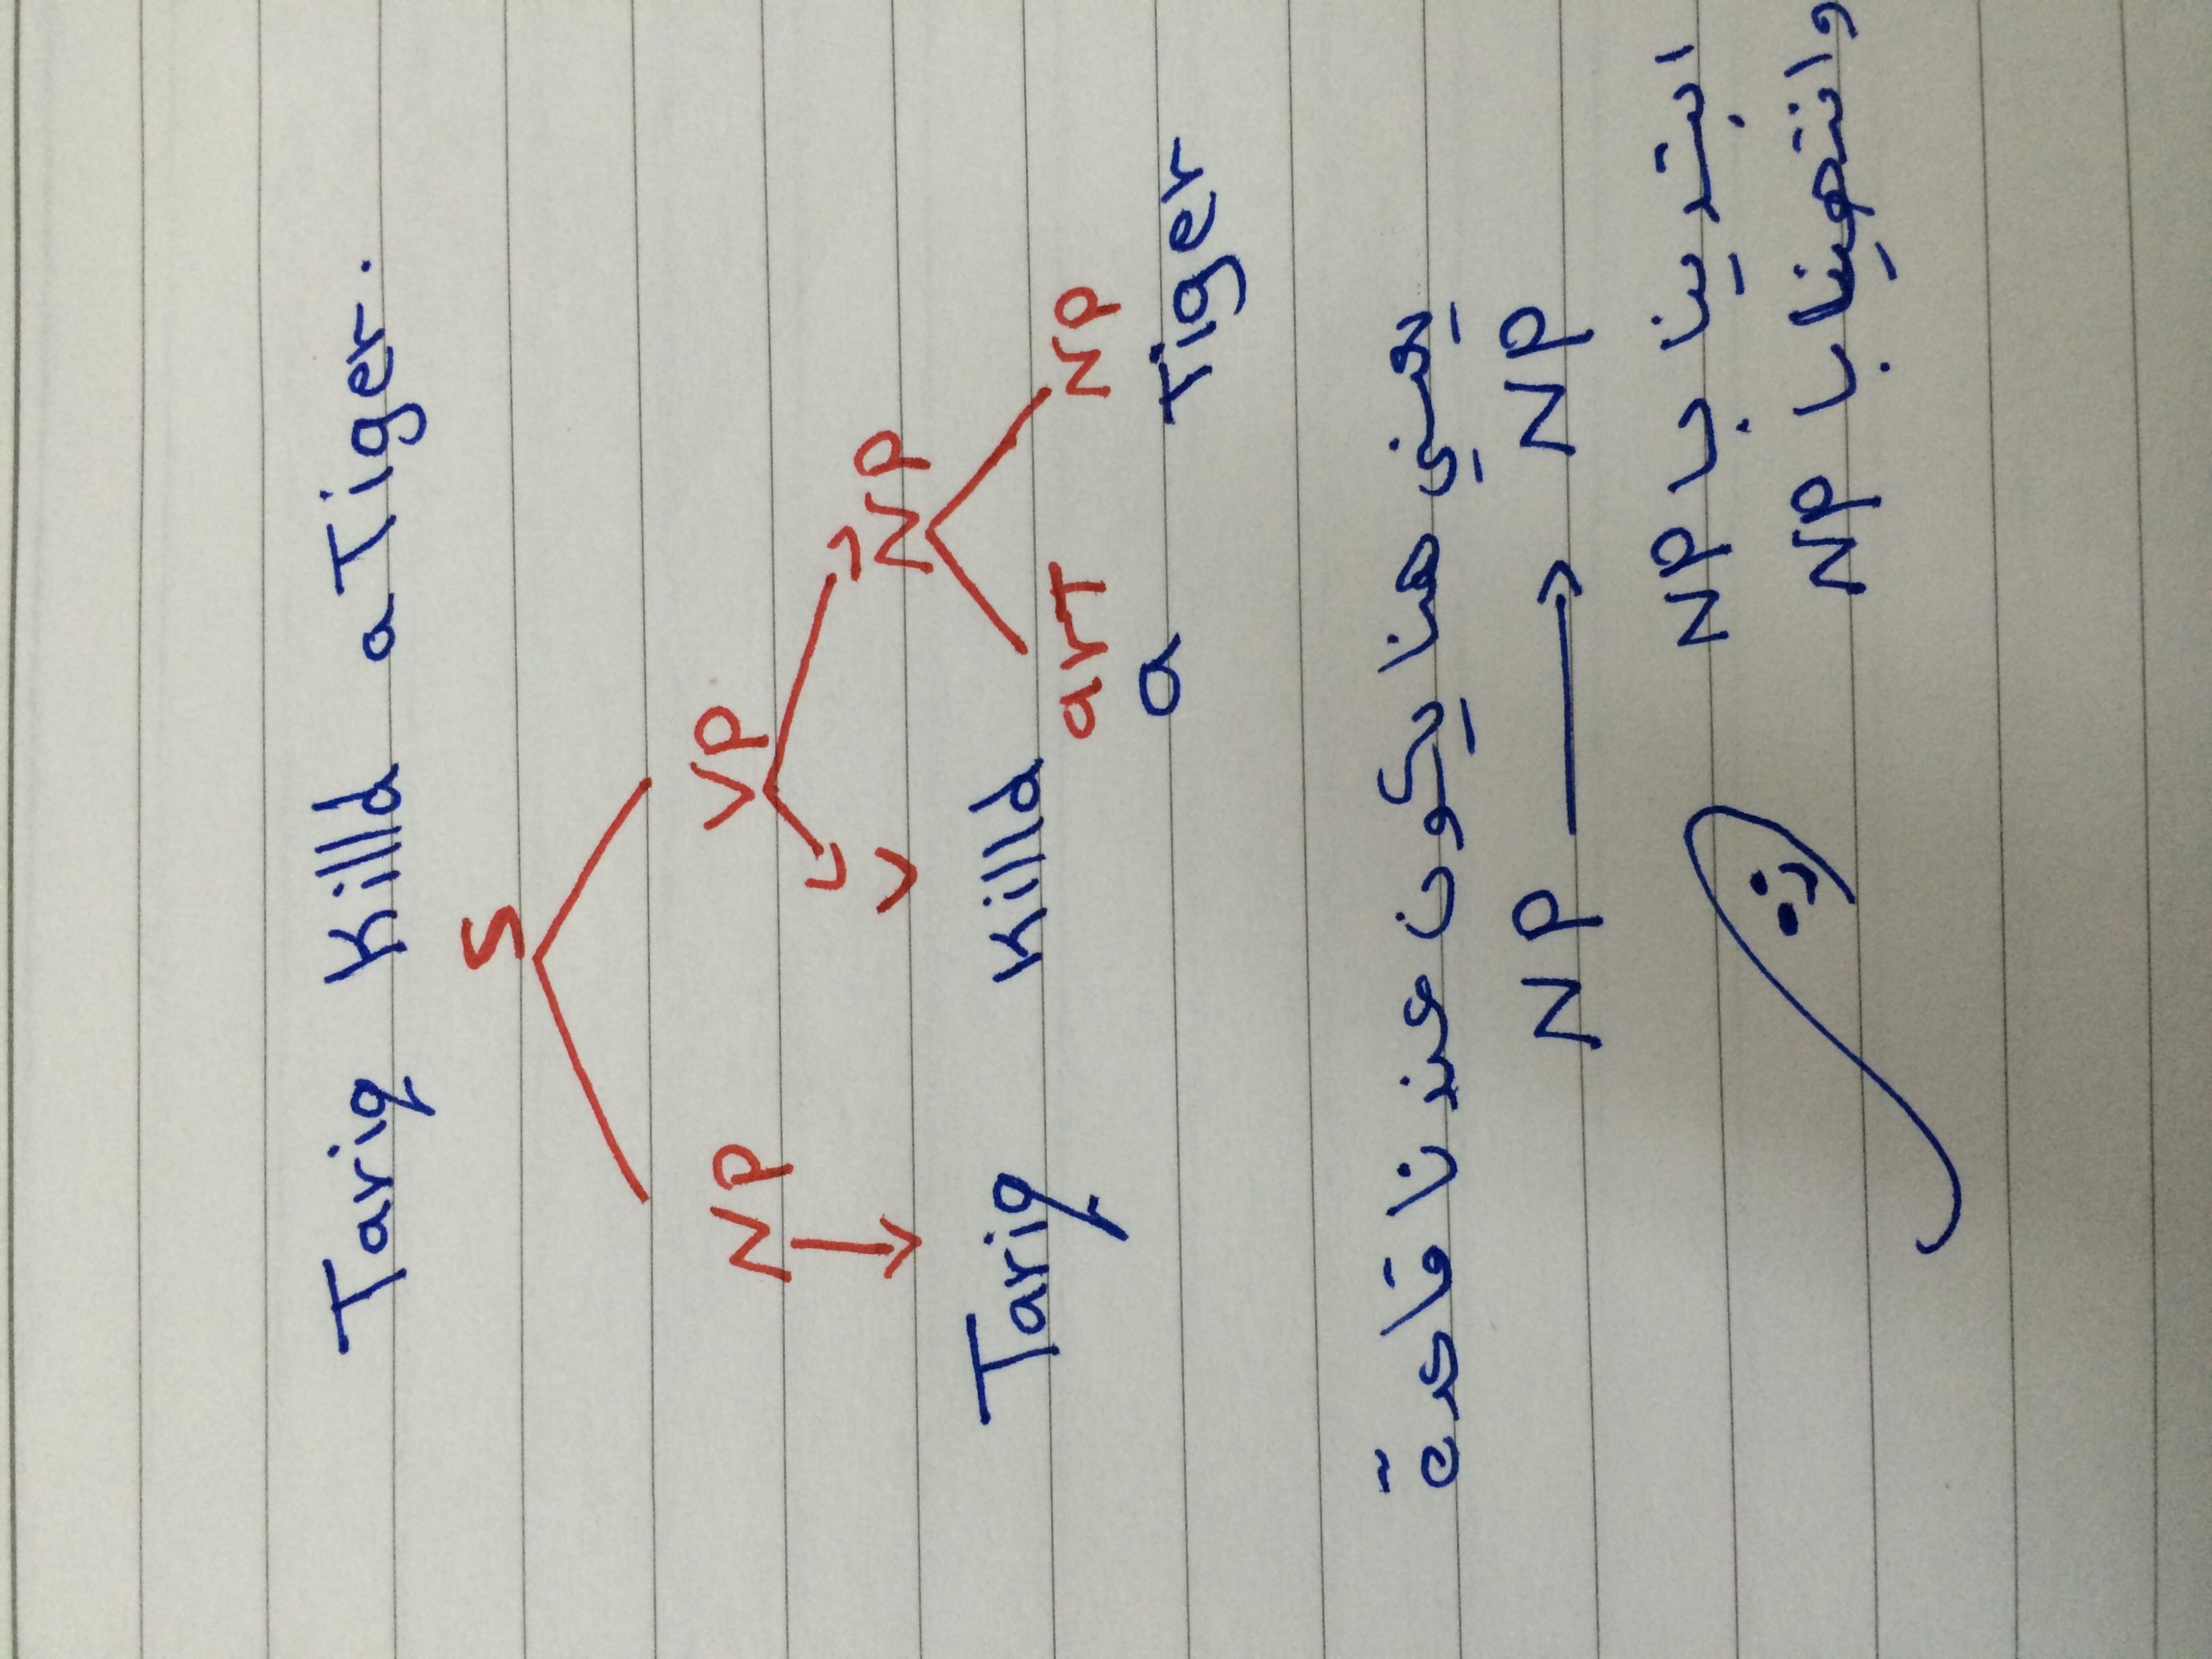 Tariq Killd a Tiger.
S
NP VP
V NP
Tariq Killd art NP
a Tiger
يعني هنا يكون عندنا قاعدة
NP → NP
ابتدينا ب NP
وانتهينا ب NP